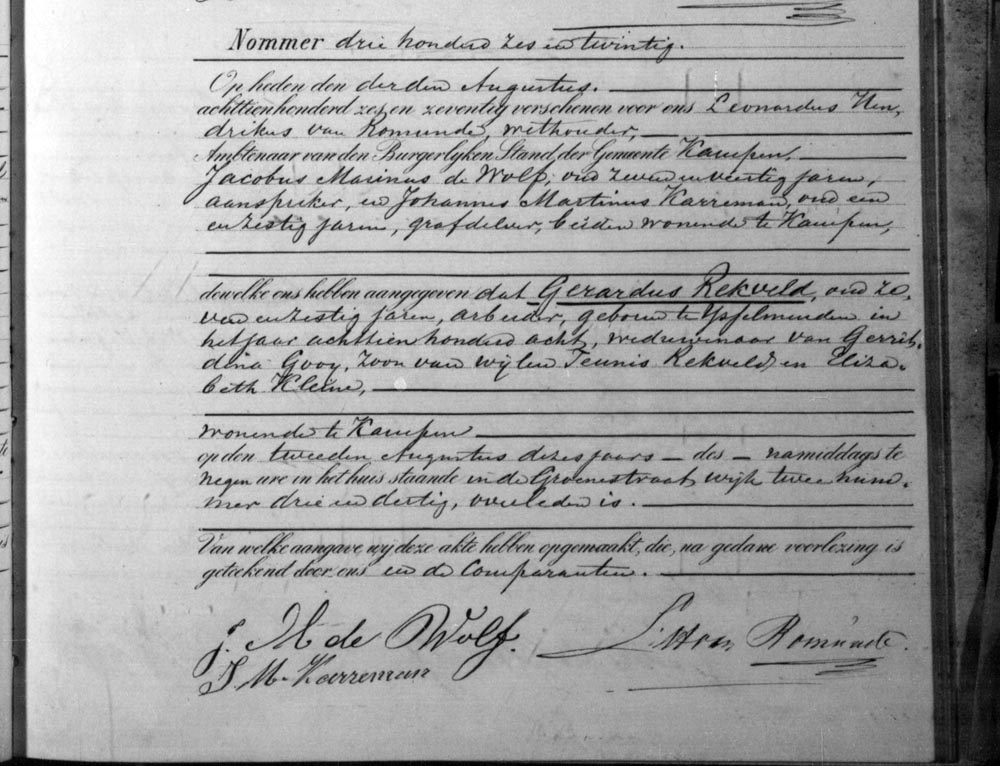 Nommer drie honderd zes en twintig.
Op heden den derden Augustus.
achttienhonderd zes en zeventig verschenen voor ons Leonardus Hen,
drikus van Romunde, wethouder,
Ambtenaar van den Burgerlyken Stand, der Gemeente Kampen,
Jacobus Marinus de Wolf, oud zeven en veertig jaren,
aanspreker, en Johannes Martinus Karreman, oud een
en zestig jaren, grafdelver, beiden wonende te Kampen,
dewelke ons hebben aangegeven dat Gerardus Rekveld, oud ze,
ven en zestig jaren, arbeider, geboren te Ysselmuiden in
het jaar achttien honderd acht, weduwenaar van Gerrit,
dina Gooy, zoon van wijlen Teunis Rekveld en Eliza,
beth Kleine,
wonende te Kampen
op den tweeden Augustus dezes jaars – des – namiddags te
negen ure in het huis staande in de Groenestraat wijk twee num,
mer drie en dertig, overleden is.
Van welke aangave wy deze akte hebben opgemaakt, die, na gedane voorlezing is
geteekend door ons en de Comparanten.
J. M de Wolf. L H van Romunde.
J M. Karreman